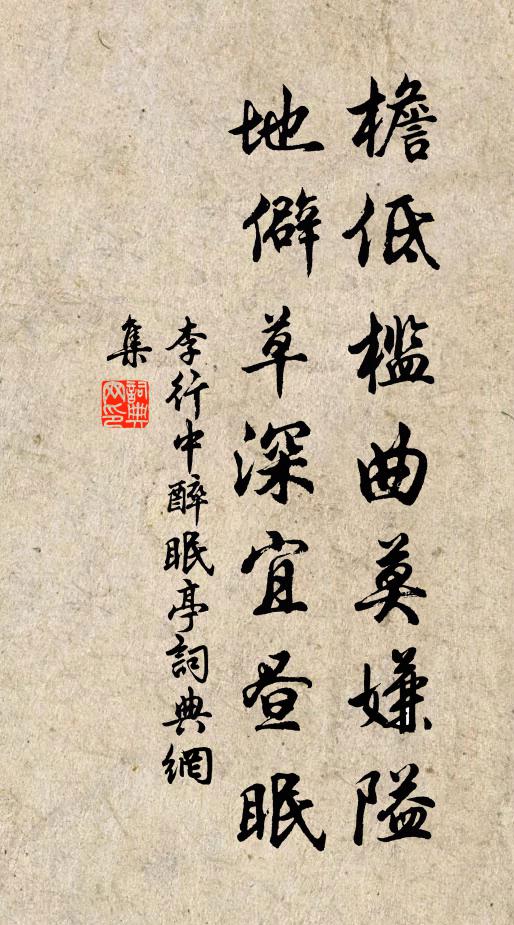 檐低檻曲莫嫌隘
地僻草深宜昼眠
李行中醉眠亭詞典網
集
詞典
网印